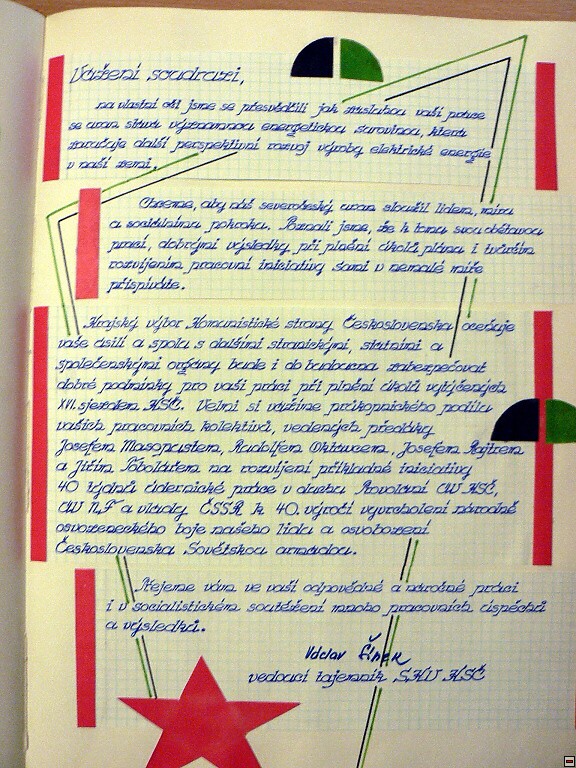 Vážení soudruzi,
na vlastní oči jsme se přesvědčili jak zásluhou vaší práce
se uran stává významnou energetickou surovinou, která
zaručuje další perspektivní rozvoj výroby elektrické energie
v naší zemi.
Chceme, aby náš severočeský uran sloužil lidem, míru
a sociálnímu pokroku. Poznali jsme, že k tomu svou obětavou
prací, dobrými výsledky při plnění úkolů plánu i tvůrčím
rozvíjením pracovní iniciativy sami v nemalé míře
přispíváte.
Krajský výbor Komunistické strany Československa oceňuje
vaše úsilí a spolu s dalšími stranickými, státními a
společenskými orgány bude i do budoucna zabezpečovat
dobré podmínky pro vaši práci při plnění úkolů vytýčených
XVI. sjezdem KSČ. Velmi si vážíme průkopnického podílu
vašich pracovních kolektivů, vedených předáky
Josefem Masopustem, Rudolfem Josefem
a Jiřím na rozvíjení příkladné iniciativy
40 týdnů údernické práce v duchu Provolání ÚV KSČ,
ÚV NF a vlády ČSSR k 40. výročí vyvrcholení národně
osvobozeneckého boje našeho lidu a osvobození
Československa Sovětskou armádou.
Přejeme vám ve vaší odpovědné a náročné práci
i v socialistickém soutěžení mnoho pracovních úspěchů
a výsledků.
Václav Šípek
vedoucí tajemník SKV KSČ